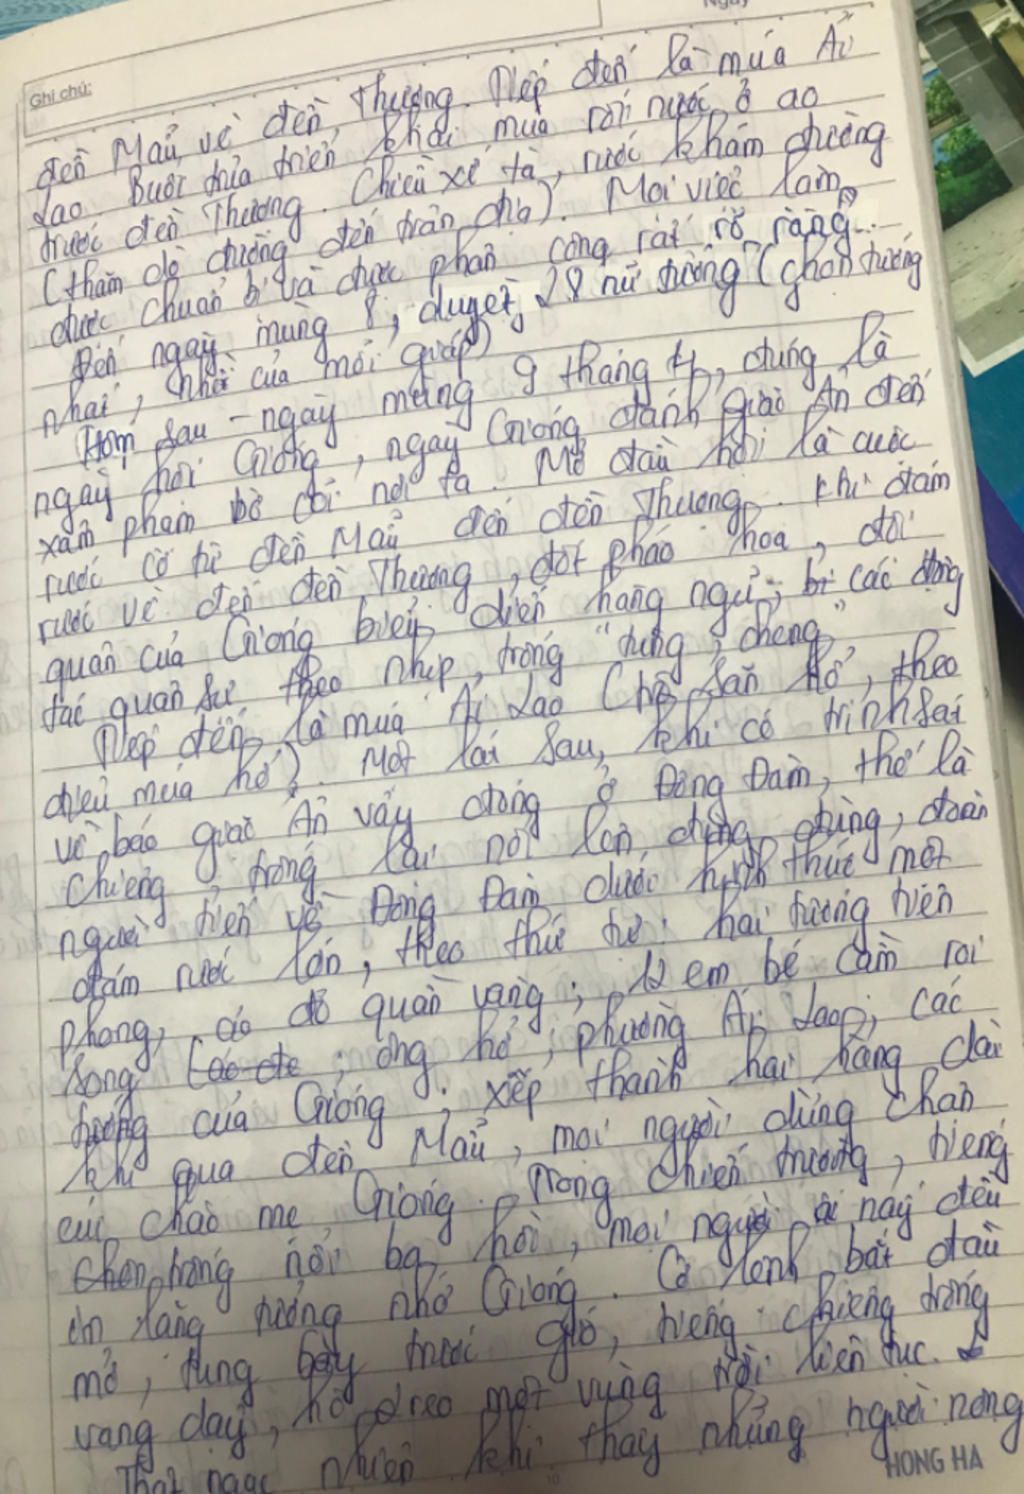 Ghi chú:
Ngày
đền Mẫu về đền Thượng. Tiếp đến là múa Ải
Lao. Buổi trưa triển khai múa rối nước ở ao
trước đền Thượng. Chiều xế tà, rước khám đường
(thăm dò đường đến trận địa). Mọi việc làm
được chuẩn bị và được phân công rất rõ ràng.
Đến ngày mùng 8, duyệt 28 nữ tướng (chọn tướng
nhất, nhì của mỗi giáp)
Hôm sau - ngày mùng 9 tháng 4, đúng là
ngày hội Gióng, ngày Gióng đánh giặc Ân đến
xâm phạm bờ cõi nơi ta. Mở đầu hội là cuộc
rước cờ từ đền Mẫu đến đền Thượng. Khi đám
rước về đến đền Thượng, đốt pháo hoa, đội
quân của Gióng biểu diễn hàng ngũ, các động
tác quân sự theo nhịp trống "tùng, cheng"
Tiếp đến là múa Ải Lao (hộ săn hổ, theo
điệu múa hổ). Một lát sau, khi có trinh sát
về báo giặc Ân vây đóng ở Đống Đàm, thế là
chiêng trống lại nổi lên đùng đùng, đoàn
người tiến về Đống Đàm dưới hình thức một
đám rước lớn, theo thứ tự: hai tướng tiên
phong, áo đỏ quần vàng; 12 em bé cầm roi
song; ông hổ; phường Ải Lao; các
tướng của Gióng; xếp thành hai hàng dài
khi qua đền Mẫu, mọi người dừng chân
cúi chào mẹ Gióng. Trong chiến trường, tiếng
trống nổi ba hồi, mọi người ai nấy đều
im lặng tưởng nhớ Gióng. Cờ lệnh bắt đầu
mở, tung bay trước gió, tiếng chiêng trống
vang dậy, hò reo một vùng trời liên tục.
Thật ngạc nhiên khi thấy những người nông
HONG HA